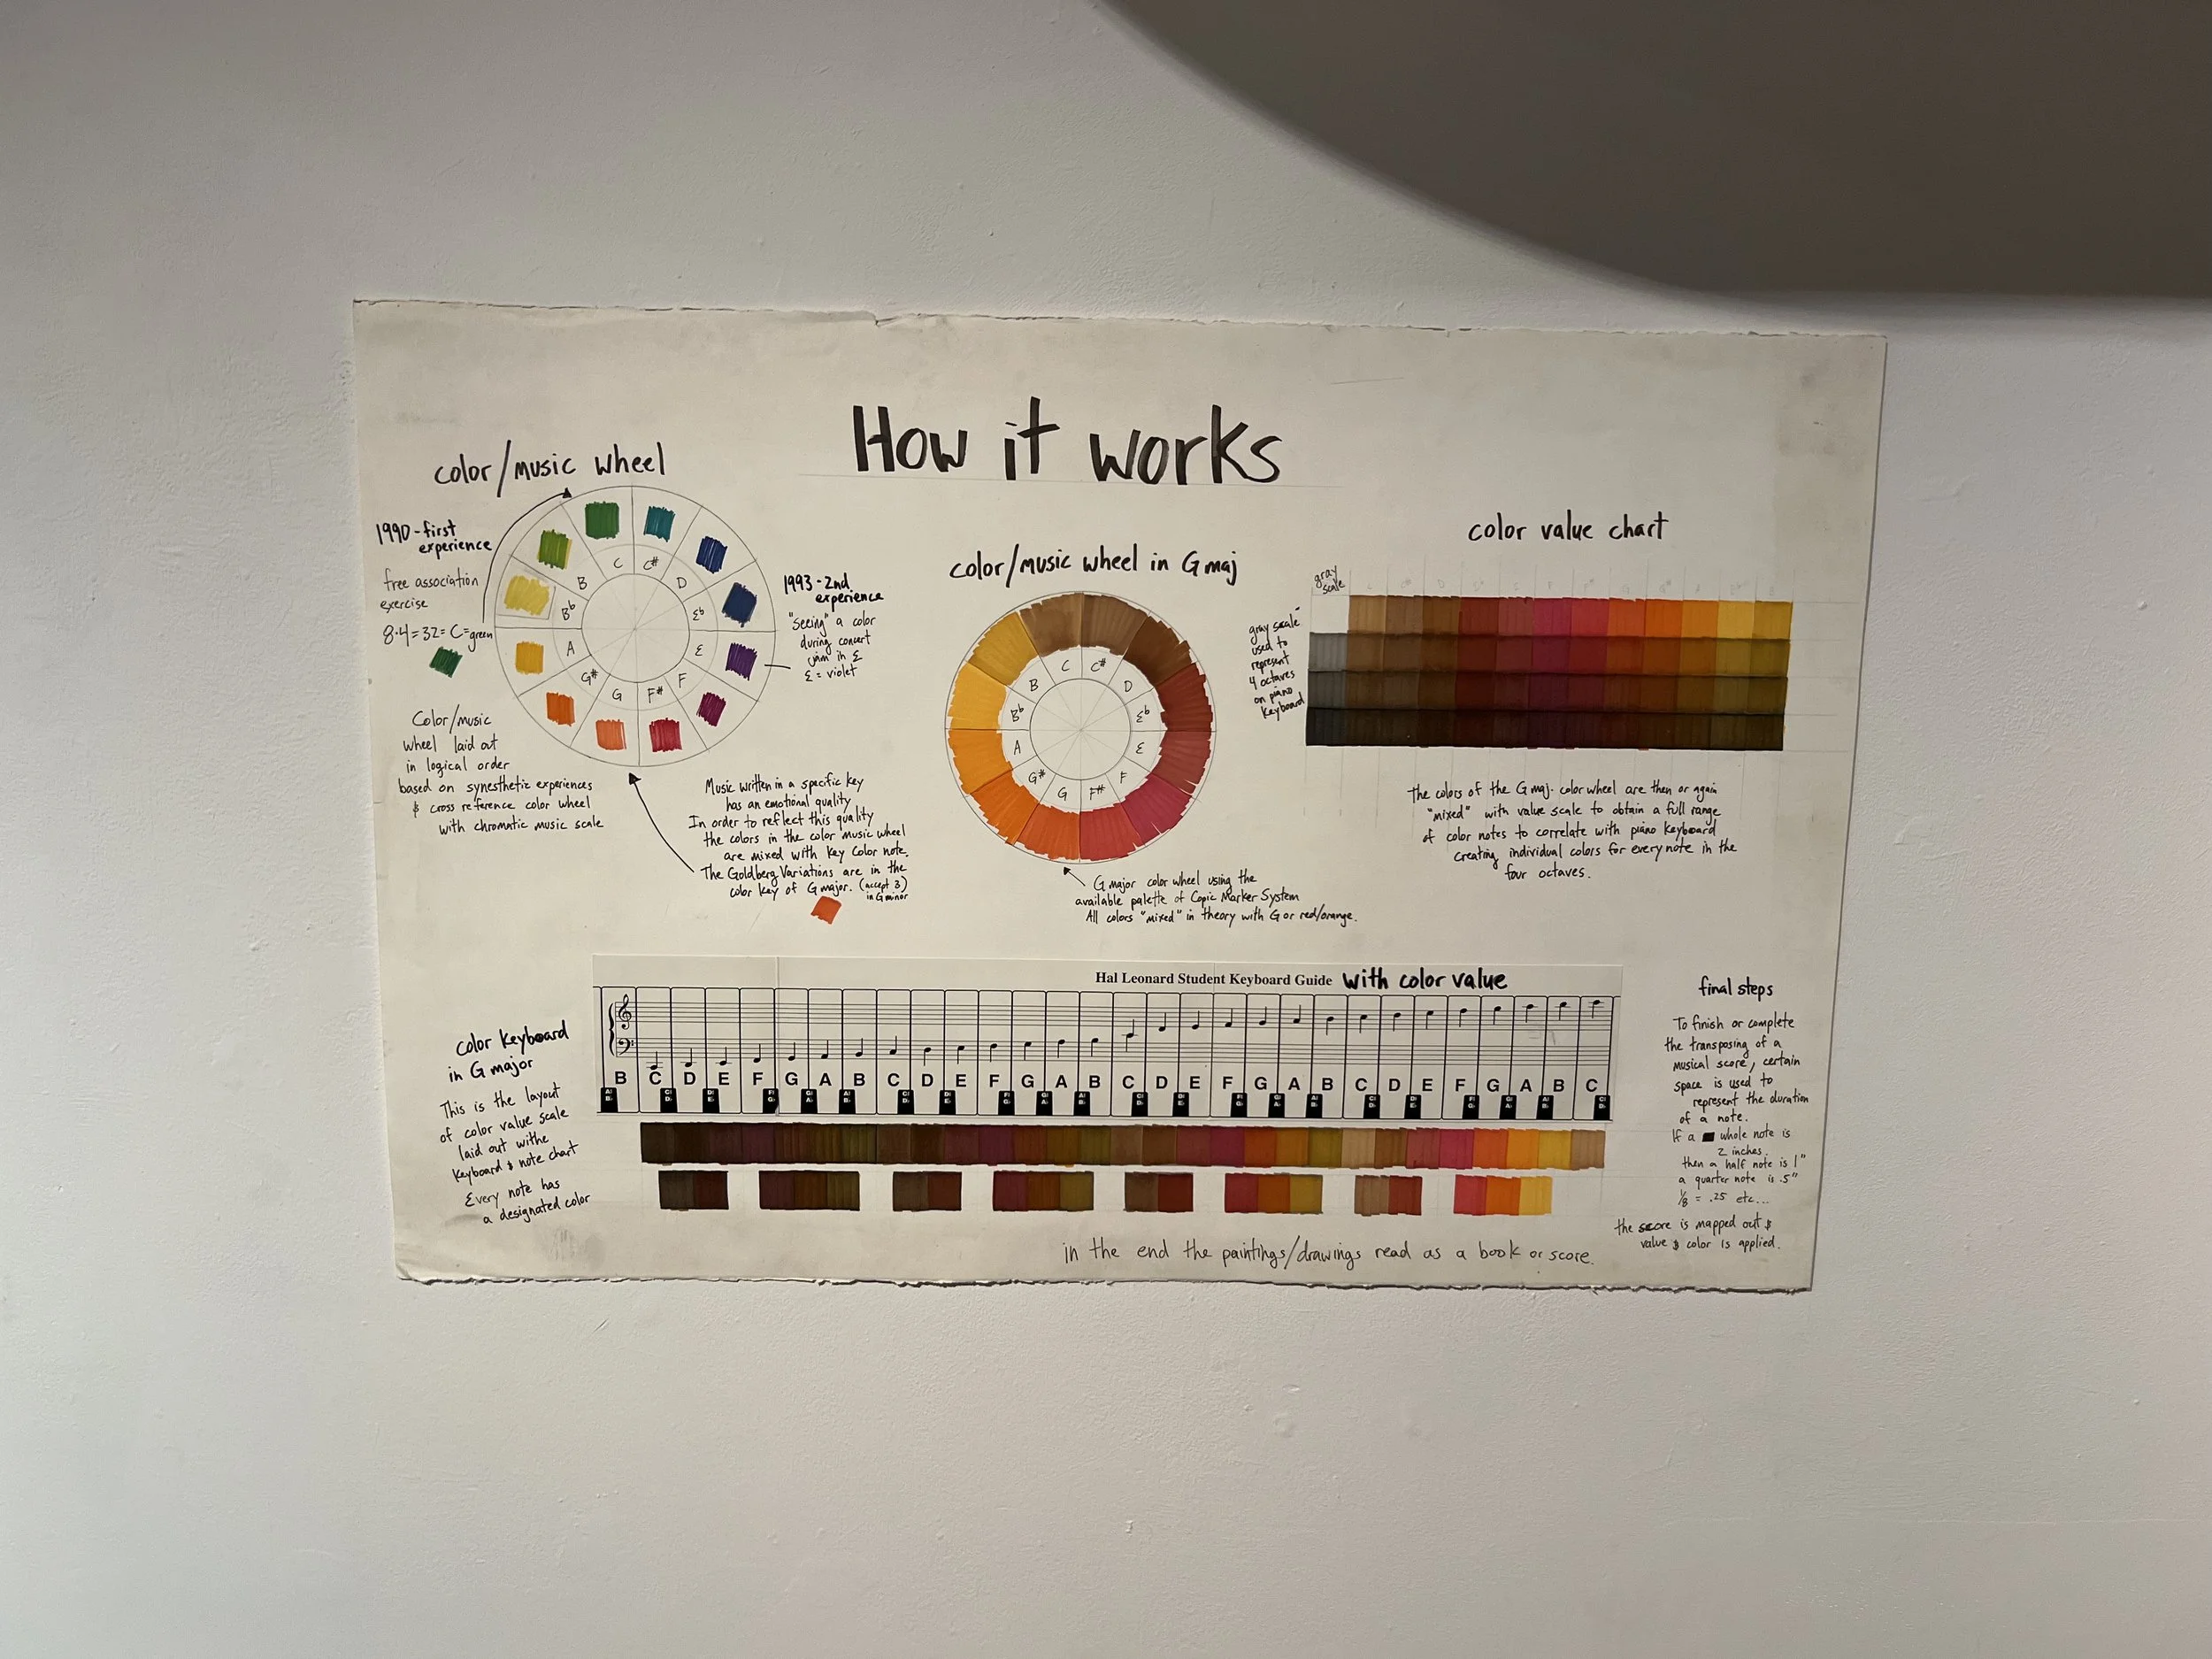 How it works
color/music wheel
1990-first
experience
free association
exercise
8·4=32=C=green
C
C#
D
Eb
E
F
F#
G
G#
A
Bb
B
1993-2nd
experience
"seeing" a color
during concert
jam in E
E = violet
Color/music
wheel laid out
in logical order
based on synesthetic experiences
& cross reference color wheel
with chromatic music scale
Music written in a specific key
has an emotional quality
In order to reflect this quality
the colors in the color music wheel
are mixed with key color note.
The Goldberg Variations are in the
color key of G major. (accept 3)
in G minor
color/music wheel in G maj
C
C#
D
Eb
E
F
F#
G
G#
A
Bb
B
G major color wheel using the
available palette of Copic Marker System
All colors "mixed" in theory with G or red/orange.
color value chart
gray
scale
gray scale
used to
represent
4 octaves
on piano
keyboard
The colors of the G maj. color wheel are then or again
"mixed" with value scale to obtain a full range
of color notes to correlate with piano keyboard
creating individual colors for every note in the
four octaves.
Hal Leonard Student Keyboard Guide with color value
B C D E F G A B C D E F G A B C D E F G A B C D E F G A B C
color keyboard
in G major
This is the layout
of color value scale
laid out withe
keyboard & note chart
Every note has
a designated color
final steps
To finish or complete
the transposing of a
musical score, certain
space is used to
represent the duration
of a note.
If a whole note is
2 inches.
then a half note is 1"
a quarter note is .5"
1/8 = .25 etc...
the score is mapped out &
value & color is applied.
in the end the paintings/drawings read as a book or score.